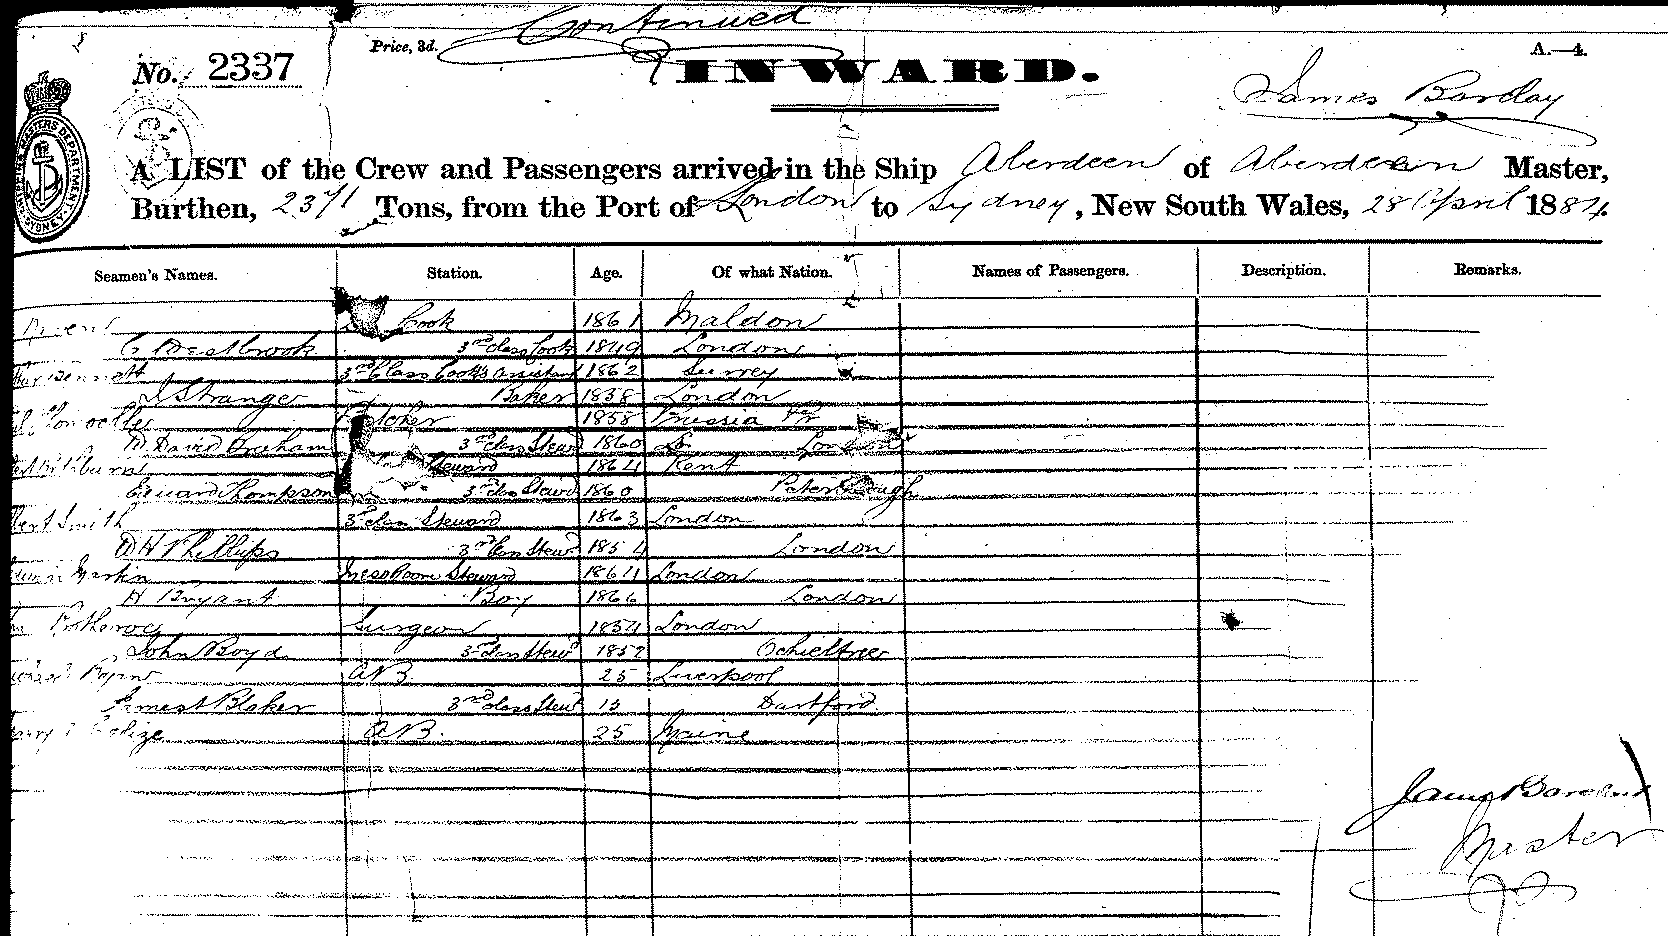 Continued
No. 2337 Price, 3d. INWARD. A.—4.
James Barclay
A LIST of the Crew and Passengers arrived in the Ship Aberdeen of Aberdeen Master,
Burthen, 2371 Tons, from the Port of London to Sydney, New South Wales, 28 April 1884.
Seamen's Names. Station. Age. Of what Nation. Names of Passengers. Description. Remarks.
Cook 1861 Maldon
C Westbrook 3rd class Cook 1849 London
Bennett 3rd Class Cook's assistant 1862 Surrey
J Stranger Baker 1838 London
Butcher 1858 Prussia
D. David Graham 3rd class Stewd 1860 London
Steward 1864 Kent
Edward Thompson 3rd class Stewd 1860 Peterborough
Smith 3rd class Steward 1863 London
W H Phillips 3rd class Stewd 1854 London
Martin Messroom Steward 1864 London
H Bryant Boy 1866 London
Surgeon 1854 London
John Boyd 3rd class Stewd 1852 Ochieltree
AB. 25 Liverpool
James Blaker 3rd class Stewd Dartford
AB. 25 Maine
Master